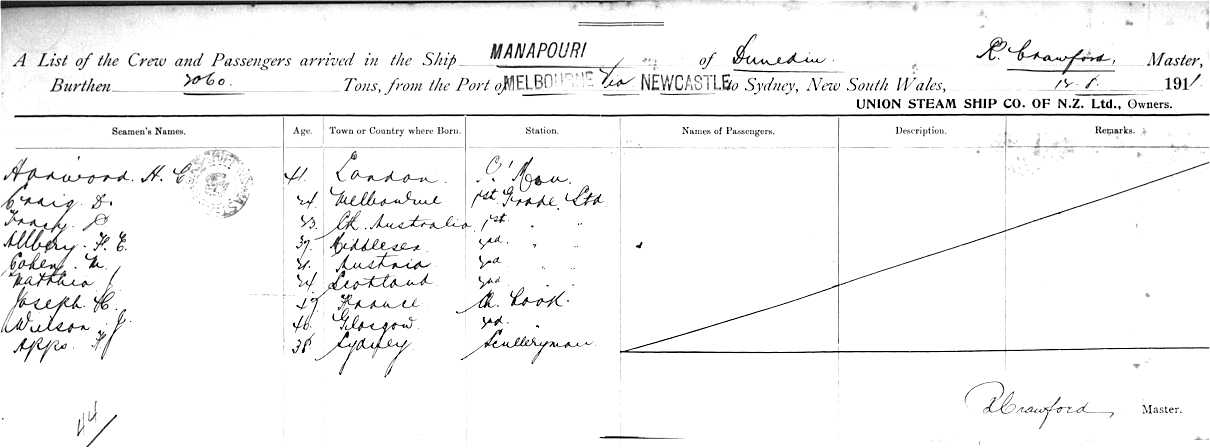 A List of the Crew and Passengers arrived in the Ship MANAPOURI of Dunedin. R. Crawford, Master,
Burthen 2060. Tons, from the Port of MELBOURNE Via NEWCASTLE to Sydney, New South Wales, 191
UNION STEAM SHIP CO. OF N.Z. Ltd., Owners.
Seamen's Names. Age. Town or Country where Born. Station. Names of Passengers. Description. Remarks.
Harwood. H. C 41. London.
Craig D. 24 Melbourne 1st Grade Std
D 33. Australia 1st " "
Allbery. F. E. 37. Middlesex 2nd " "
Cohen. M. Austria 2nd " "
J 24 Scotland 2nd " "
Joseph. H. France Cook.
Wilson. J. 46. Glasgow. 2nd "
Apps. 38. Sydney Sculleryman
44
R Crawford, Master.